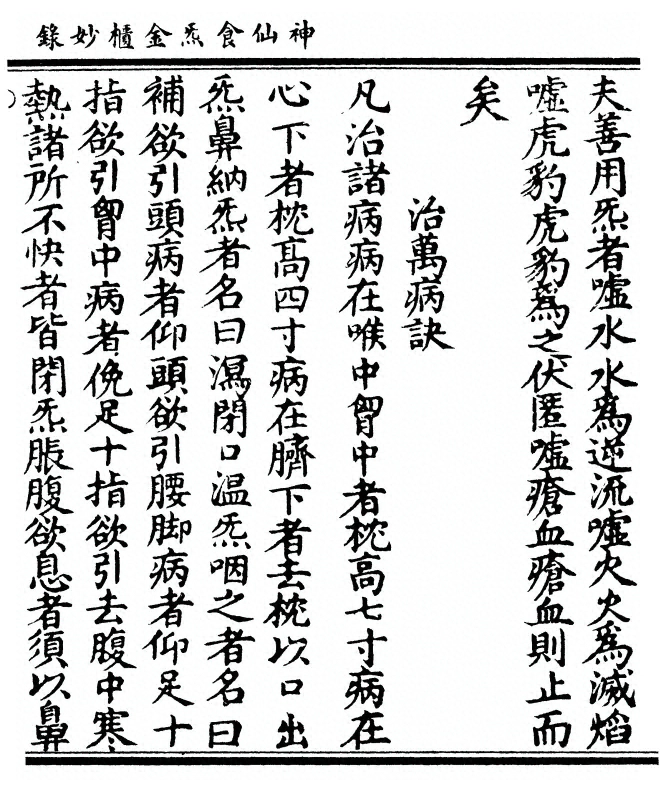 神仙食炁金櫃妙錄
夫善用炁者噓水水為逆流噓火火為滅焰
噓虎豹虎豹為之伏匿噓瘡血瘡血則止而
矣
治萬病訣
凡治諸病病在喉中胷中者枕高七寸病在
心下者枕高四寸病在臍下者去枕以口出
炁鼻納炁者名曰㵖閉口温炁咽之者名曰
補欲引頭病者仰頭欲引腰脚病者仰足十
指欲引胷中病者俛足十指欲引去腹中寒
熱諸所不快者皆閉炁脹腹欲息者須以鼻